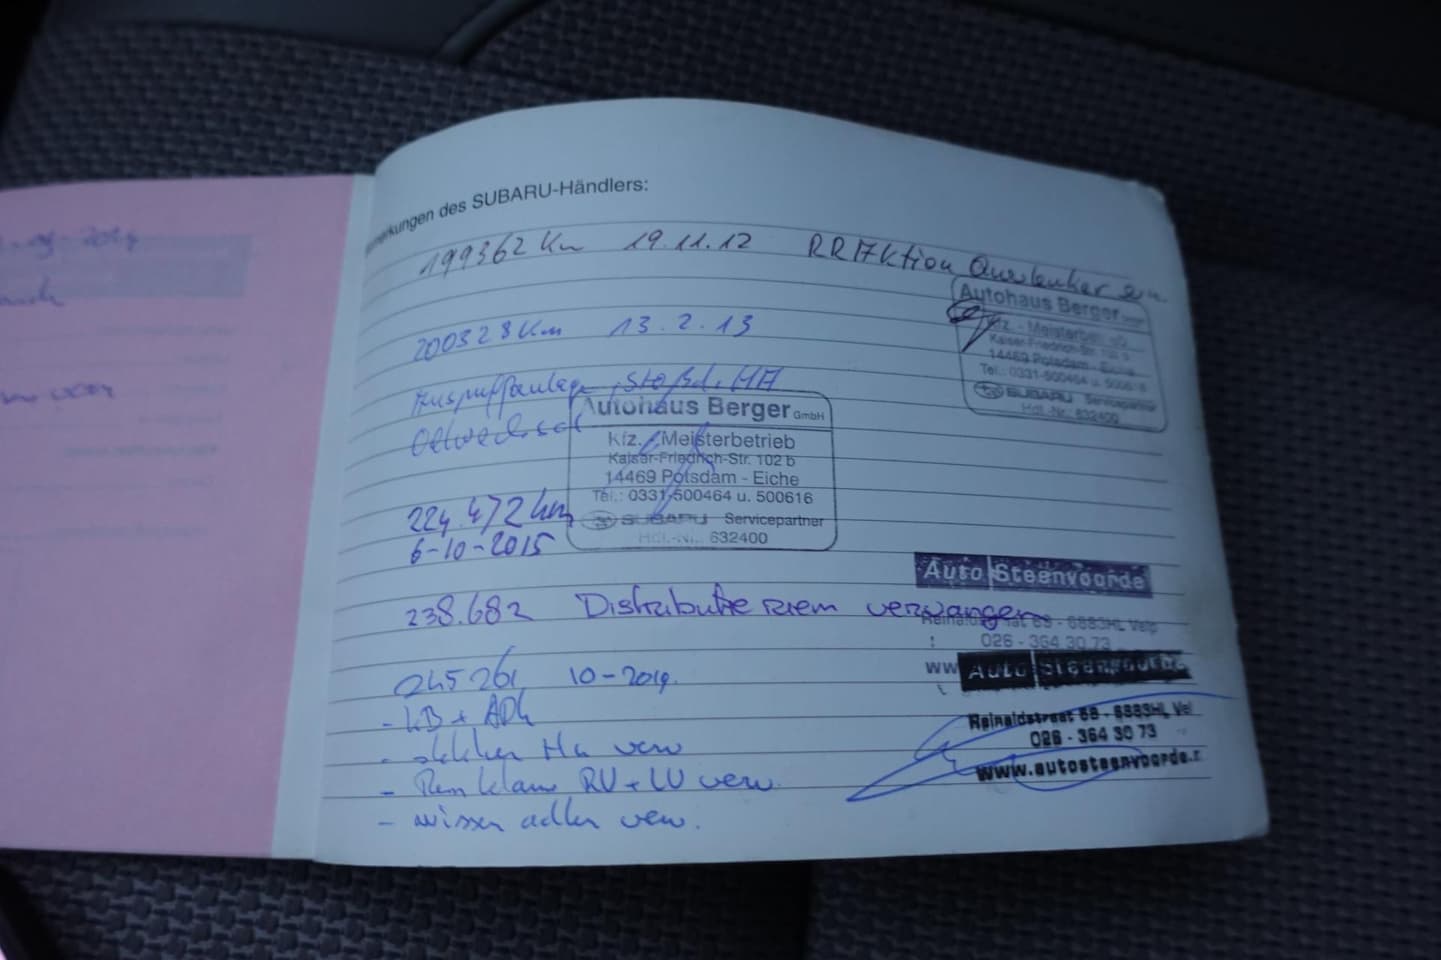 merkungen des SUBARU-Händlers:
199362 Km 19.11.12 RR Aktion Querlenker
Autohaus Berger GmbH
Kfz. - Meisterbetrieb
Kaiser-Friedrich-Str. 102 b
14469 Potsdam - Eiche
Tel.: 0331-500464 u. 500616
SUBARU Servicepartner
Hdl.-Nr.: 632400
200328 Km 13.2.13
Auspuffanlage, Stoßd. HA
Oelwechsel
Autohaus Berger GmbH
Kfz. - Meisterbetrieb
Kaiser-Friedrich-Str. 102 b
14469 Potsdam - Eiche
Tel.: 0331-500464 u. 500616
SUBARU Servicepartner
Hdl.-Nr.: 632400
224.472 km
6-10-2015
238.682 Distributie riem vervangen
Auto Steenvoorde
Reinaldstraat 69 - 6883HL Velp
026 - 364 30 73
ww
245261 10-2019.
Auto Steenvoorde
- KB + APK
Reinaldstraat 69 - 6883HL Vel
026 - 364 30 73
- Ha verv
www.autosteenvoorde.n
- Remklauw RV + LV verv.
- wissen verv.